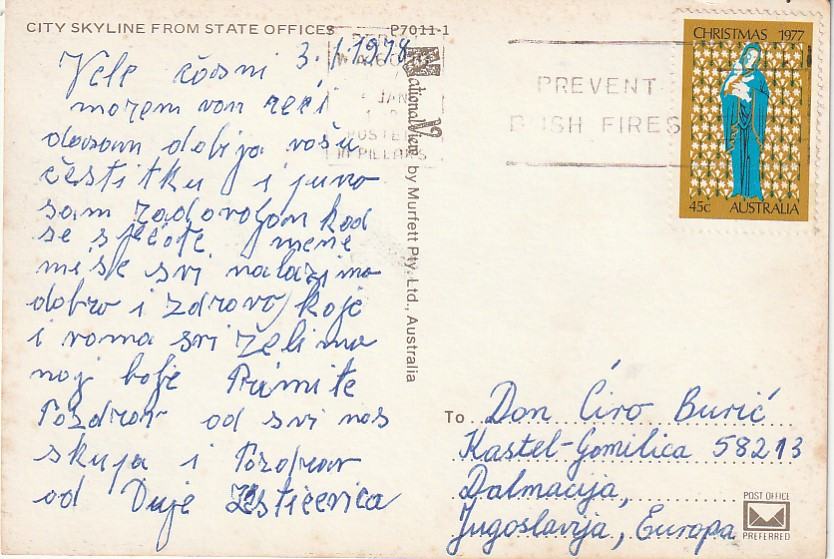 CITY SKYLINE FROM STATE OFFICES P7011-1
3. 1. 1978
Vele časni
morem vam reći
dobija vašu
čestitku i puno
sam zadovoljan kad
se sjećate mene
mi se svi nalazimo
dobro i zdravo koje
i vama svi želimo
naj bolje Primite
Pozdrav od svi nas
skupa i Pozdrav
od Duje
National View by Murfett Pty. Ltd., Australia
JAN
POSTE
PILLARS
PREVENT
BUSH FIRES
CHRISTMAS 1977
45c AUSTRALIA
To Don Ćiro Burić
Kastel-Gomilica 58213
Dalmacija,
Jugoslavija, Europa
POST OFFICE
PREFERRED